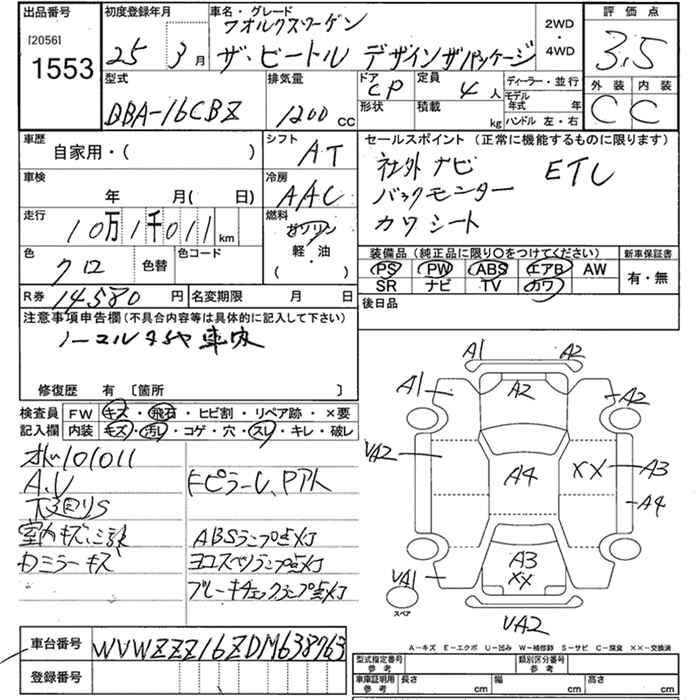 出品番号
[2056]
1553
初度登録年月
25年3月
車名・グレード
フオルクスワーゲン
ザ・ビートル デザインザパッケージ
2WD
・
4WD
評価点
3.5
型式
DBA-16CBZ
排気量
1200 CC
ドア
CP
形状
定員
4人
積載
kg
ディーラー・並行
モデル年式 年
ハンドル 左・右
外装
C
内装
C
車歴
自家用・( )
シフト
AT
セールスポイント(正常に機能するものに限ります)
社外 ナビ ETC
バックモニター
カワ シート
車検
年 月( 日)
冷房
AAC
走行
10万1千011 km
燃料
ガソリン
軽・油
( )
色
クロ
色替
色コード
装備品(純正品に限り○をつけてください)
PS PW ABS エアB AW
SR ナビ TV カワ
新車保証書
有・無
R券 14580円
名変期限 月 日
後日品
注意事項申告欄(不具合内容等は具体的に記入して下さい)
ノーマルタイヤ車内
修復歴 有 〔箇所 〕
検査員
記入欄
FW キズ・飛石・ヒビ割・リペア跡・×要
内装 キズ・汚レ・コゲ・穴・スレ・キレ・破レ
オド101011
A.U
下回りS
室内キズ
Dミラーキズ
ABSランプ点灯
ヨコスベリランプ点灯
ブレーキチェックランプ点灯
A1 A2
A1 A2 A2
VA2 A4 XX A3
A4
VA1 A3
XX
スペア
VA2
A-キズ E-エクボ U-凹み W-補修跡 S-サビ C-腐食 XX-交換済
車台番号 WVWZZZ16ZDM638963
登録番号
型式指定番号
参考
類別区分番号
参考
車庫証明用
参考
長さ cm
幅 cm
高さ cm